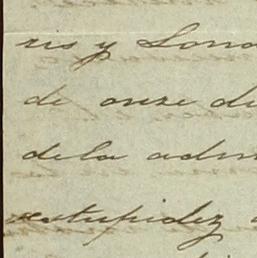 ris y Lon
de onze di
dela adm
estupidez